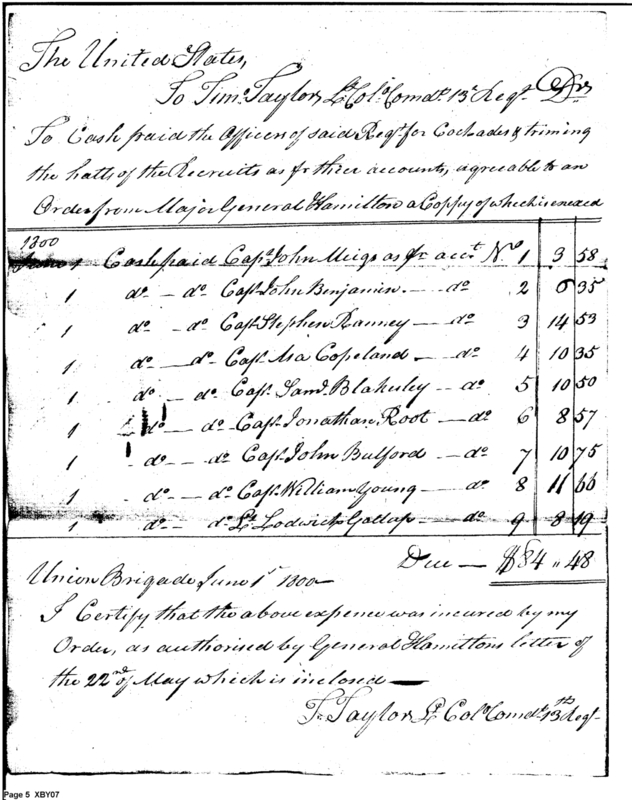 The United States,
To Timo. Taylor, Lt. Colo. Comdt. 13th Regt. Drs
To Cash paid the Officers of said Regt. for Cockades & triming
the hatts of the Recruits as pr thier accounts, agreable to an
Order from Major General Hamilton a Coppy of which is enexed
1800
June 1 Cash paid Capt. John Meigs as pr acct. No. 1 3 58
1 do — do Capt. John Benjamin — do 2 6 35
1 do — do Capt. Stephen Ranney — do 3 14 53
1 do — do Capt. Asa Copeland — do 4 10 35
1 do — do Capt. Saml. Blakesley — do 5 10 50
1 do — do Capt. Jonathan Root — do 6 8 57
1 do — do Capt. John Bulford — do 7 10 75
1 do — do Capt. William Young — do 8 11 66
1 do — do Lt. Lodwick Gallup — do 9 8 19
Due — $84 " 48
Union Brigade June 1st 1800
I Certify that the above expence was incured by my
Order, as authorised by General Hamiltons letter of
the 22nd of May which is inclosed —
T. Taylor Lt. Colo. Comdt. 13th Regt.
Page 5 XBY07